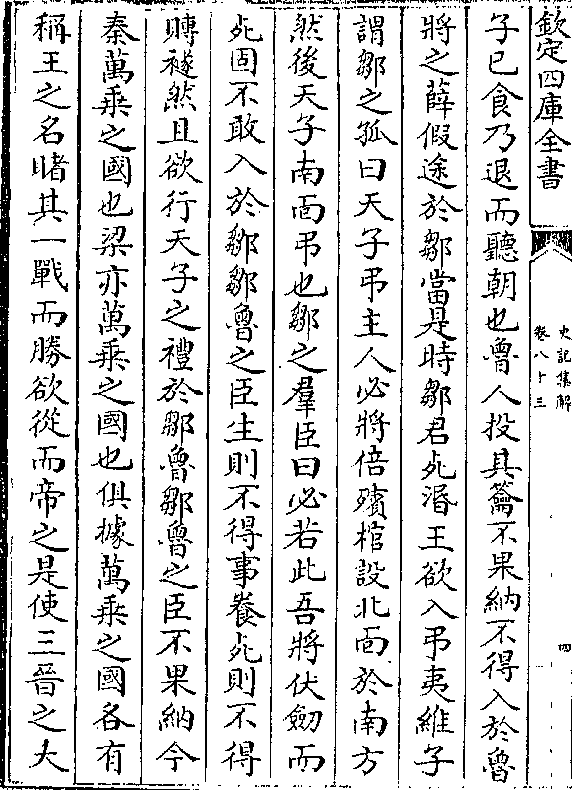 欽定四庫全書
史記集解
卷八十三
四
子已食乃退而聽朝也魯人投其籥不果納不得入於魯
將之薛假途於鄒當是時鄒君死湣王欲入弔夷維子
謂鄒之孤曰天子弔主人必將倍殯棺設北面於南方
然後天子南面弔也鄒之羣臣曰必若此吾將伏劒而
死固不敢入於鄒鄒魯之臣生則不得事養死則不得
賻襚然且欲行天子之禮於鄒魯鄒魯之臣不果納今
秦萬乗之國也梁亦萬乗之國也俱據萬乗之國各有
稱王之名睹其一戰而勝欲從而帝之是使三晉之大